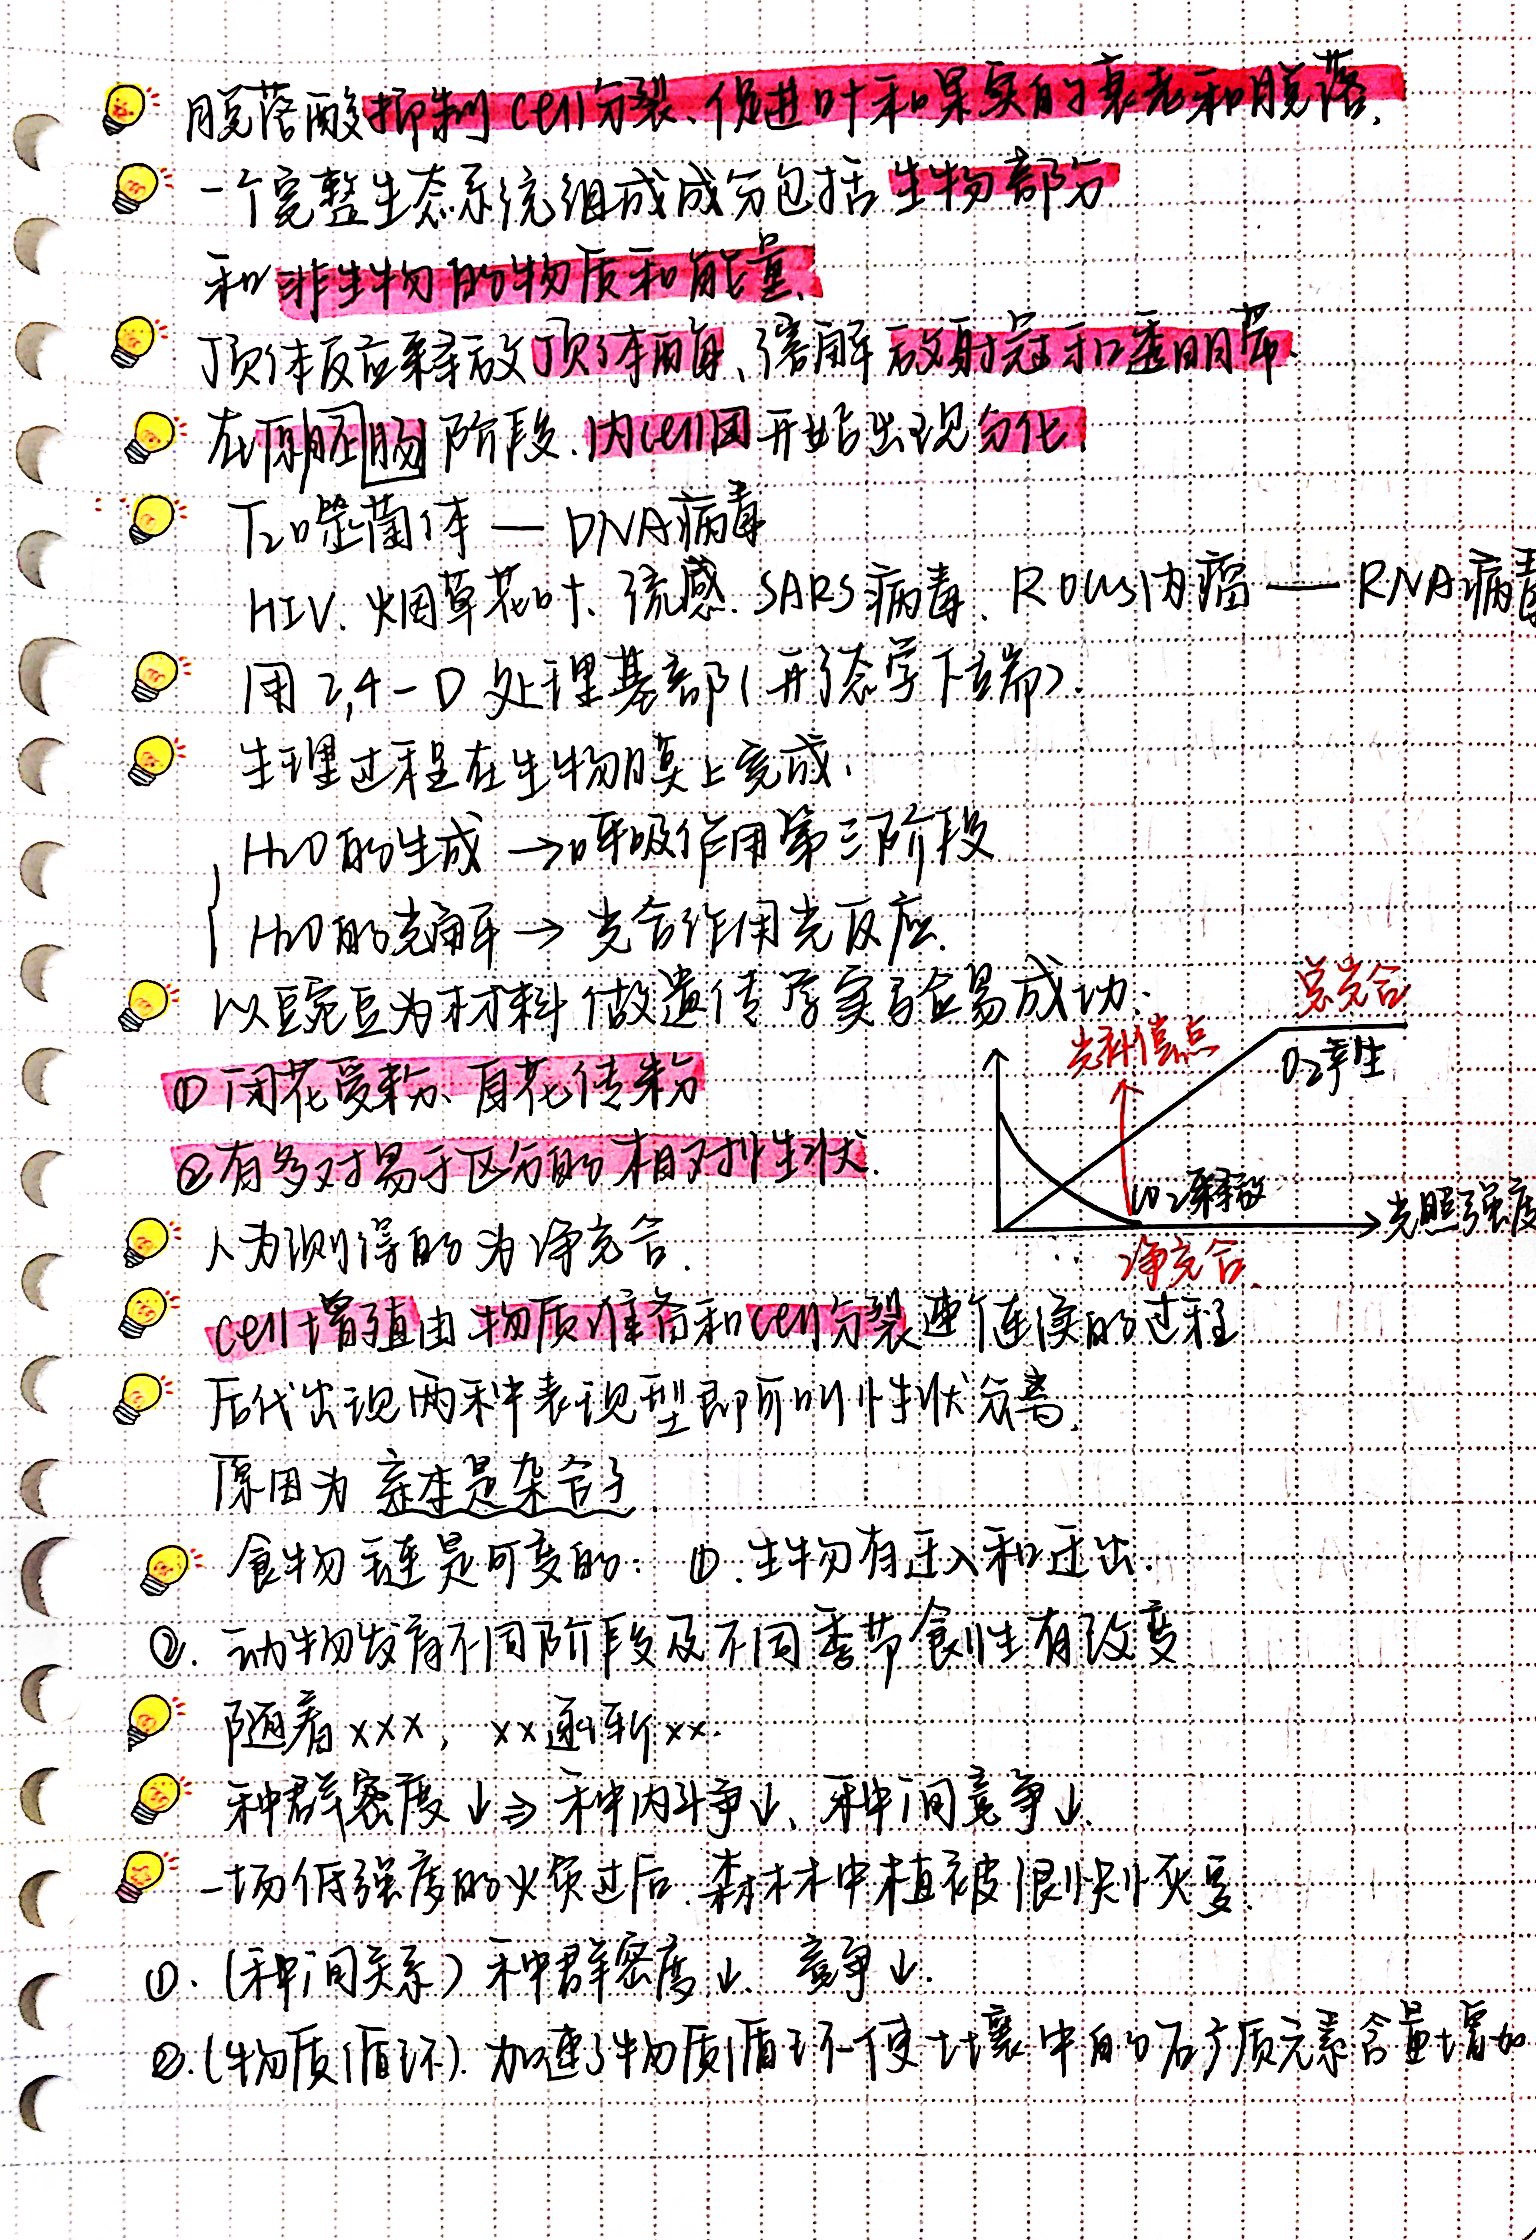 脱落酸抑制cell分裂、促进叶和果实的衰老和脱落.
一个完整生态系统组成成分包括生物部分
和非生物的物质和能量.
顶体反应释放顶体酶、溶解放射冠和透明带.
在原肠胚阶段.内cell团开始出现分化.
T2噬菌体 — DNA病毒
HIV.烟草花叶.流感.SARS病毒、Rous肉瘤 — RNA病毒
用2,4-D处理基部(形态学下端).
生理过程在生物膜上完成.
H2O的生成 → 呼吸作用第三阶段
H2O的光解 → 光合作用光反应.
以豌豆为材料做遗传学实验易成功:
①闭花受粉、自花传粉
②有多对易于区分的相对性状.
总光合
光补偿点
O2产生
CO2释放
光照强度
净光合.
人为测得的为净光合.
cell增殖由物质准备和cell分裂 连续的过程
后代出现两种表现型即所叫性状分离.
原因为亲本是杂合子
食物链是可变的: ①.生物有迁入和迁出.
②.动物发育不同阶段及不同季节食性有改变
随着xxx, xx逐渐xx.
种群密度↓⇒种内斗争↓、种间竞争↓.
一场低强度的火烧过后.森林中植被很快恢复.
①.(种间关系)种群密度↓、竞争↓.
②.(物质循环).加速了物质循环使土壤中的矿质元素含量增加